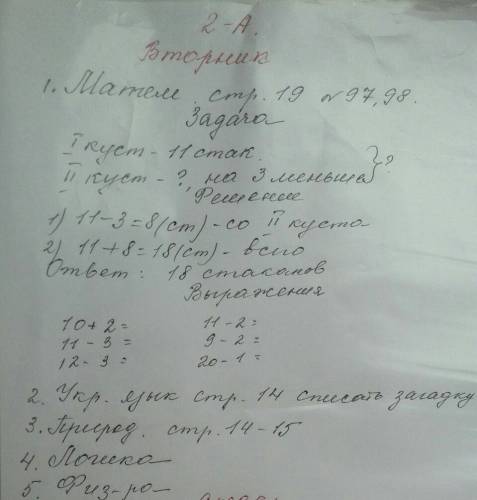 2-А.
Вторник
1. Матем. стр. 19 №97,98.
Задача
I куст - 11 стак.
II куст - ?, на 3 меньше } ?
Решение
1) 11-3=8(ст)-со II куста
2) 11+8=18(ст)-всего
Ответ: 18 стаканов
Выражения
10+2= 11-2=
11-3= 9-2=
12-3= 20-1=
2. Укр. язык стр. 14 списать загадку
3. Природ. стр. 14-15
4. Логика
5. Физ-ра